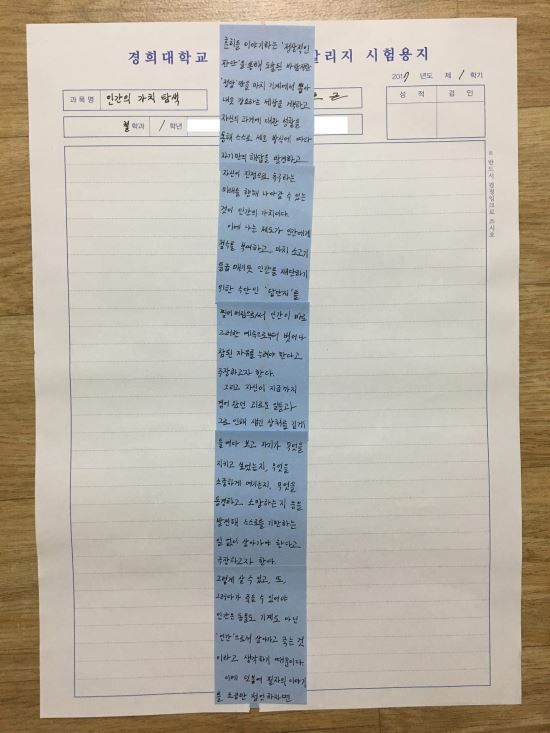 경희대학교
칼리지 시험용지
2017 년도 제 1 학기
과목명 인간의 가치 탐색
성적 검인
철 학과 1 학년
※ 반드시 검정잉크로 쓰시오
흔히들 이야기하는 '정상적인
판단'을 통해 도출된
'정답'만을 마치 기계에서 뽑아
내듯 강요하는 세상을 거부하고
자신의 과거에 대한 성찰을
통해 스스로 세운 방식에 따라
자기만의 해답을 발견하고
자신이 진정으로 추구하는
미래를 향해 나아갈 수 있는
것이 인간의 가치이다.
이에 나는 제도가 인간에게
점수를 부여하고, 마치 소고기
등급 매기듯 인간을 재단하기
위한 수단인 '답안지'를
찢어버림으로써 인간이 바로
그러한 예속으로부터 벗어나
참된 자유를 누려야 한다고
주장하고자 한다.
그리고 자신이 지금까지
겪어 왔던 괴로운 일들과
그로 인해 생긴 상처를 깊게
들여다 보고 자기가 무엇을
지키고 싶었는지, 무엇을
소중하게 여기는지, 무엇을
동경하고 소망하는지 등을
발견해 스스로를 기만하는
일 없이 살아가야 한다고
주장하고자 한다.
그렇게 살 수 있고, 또,
그러다가 죽을 수 있어야
인간은 동물도 기계도 아닌
'인간'으로서 살아가고 죽는 것
이라고 생각하기 때문이다.
이에 덧붙여 필자의 이야기
를 조금만 첨언하자면